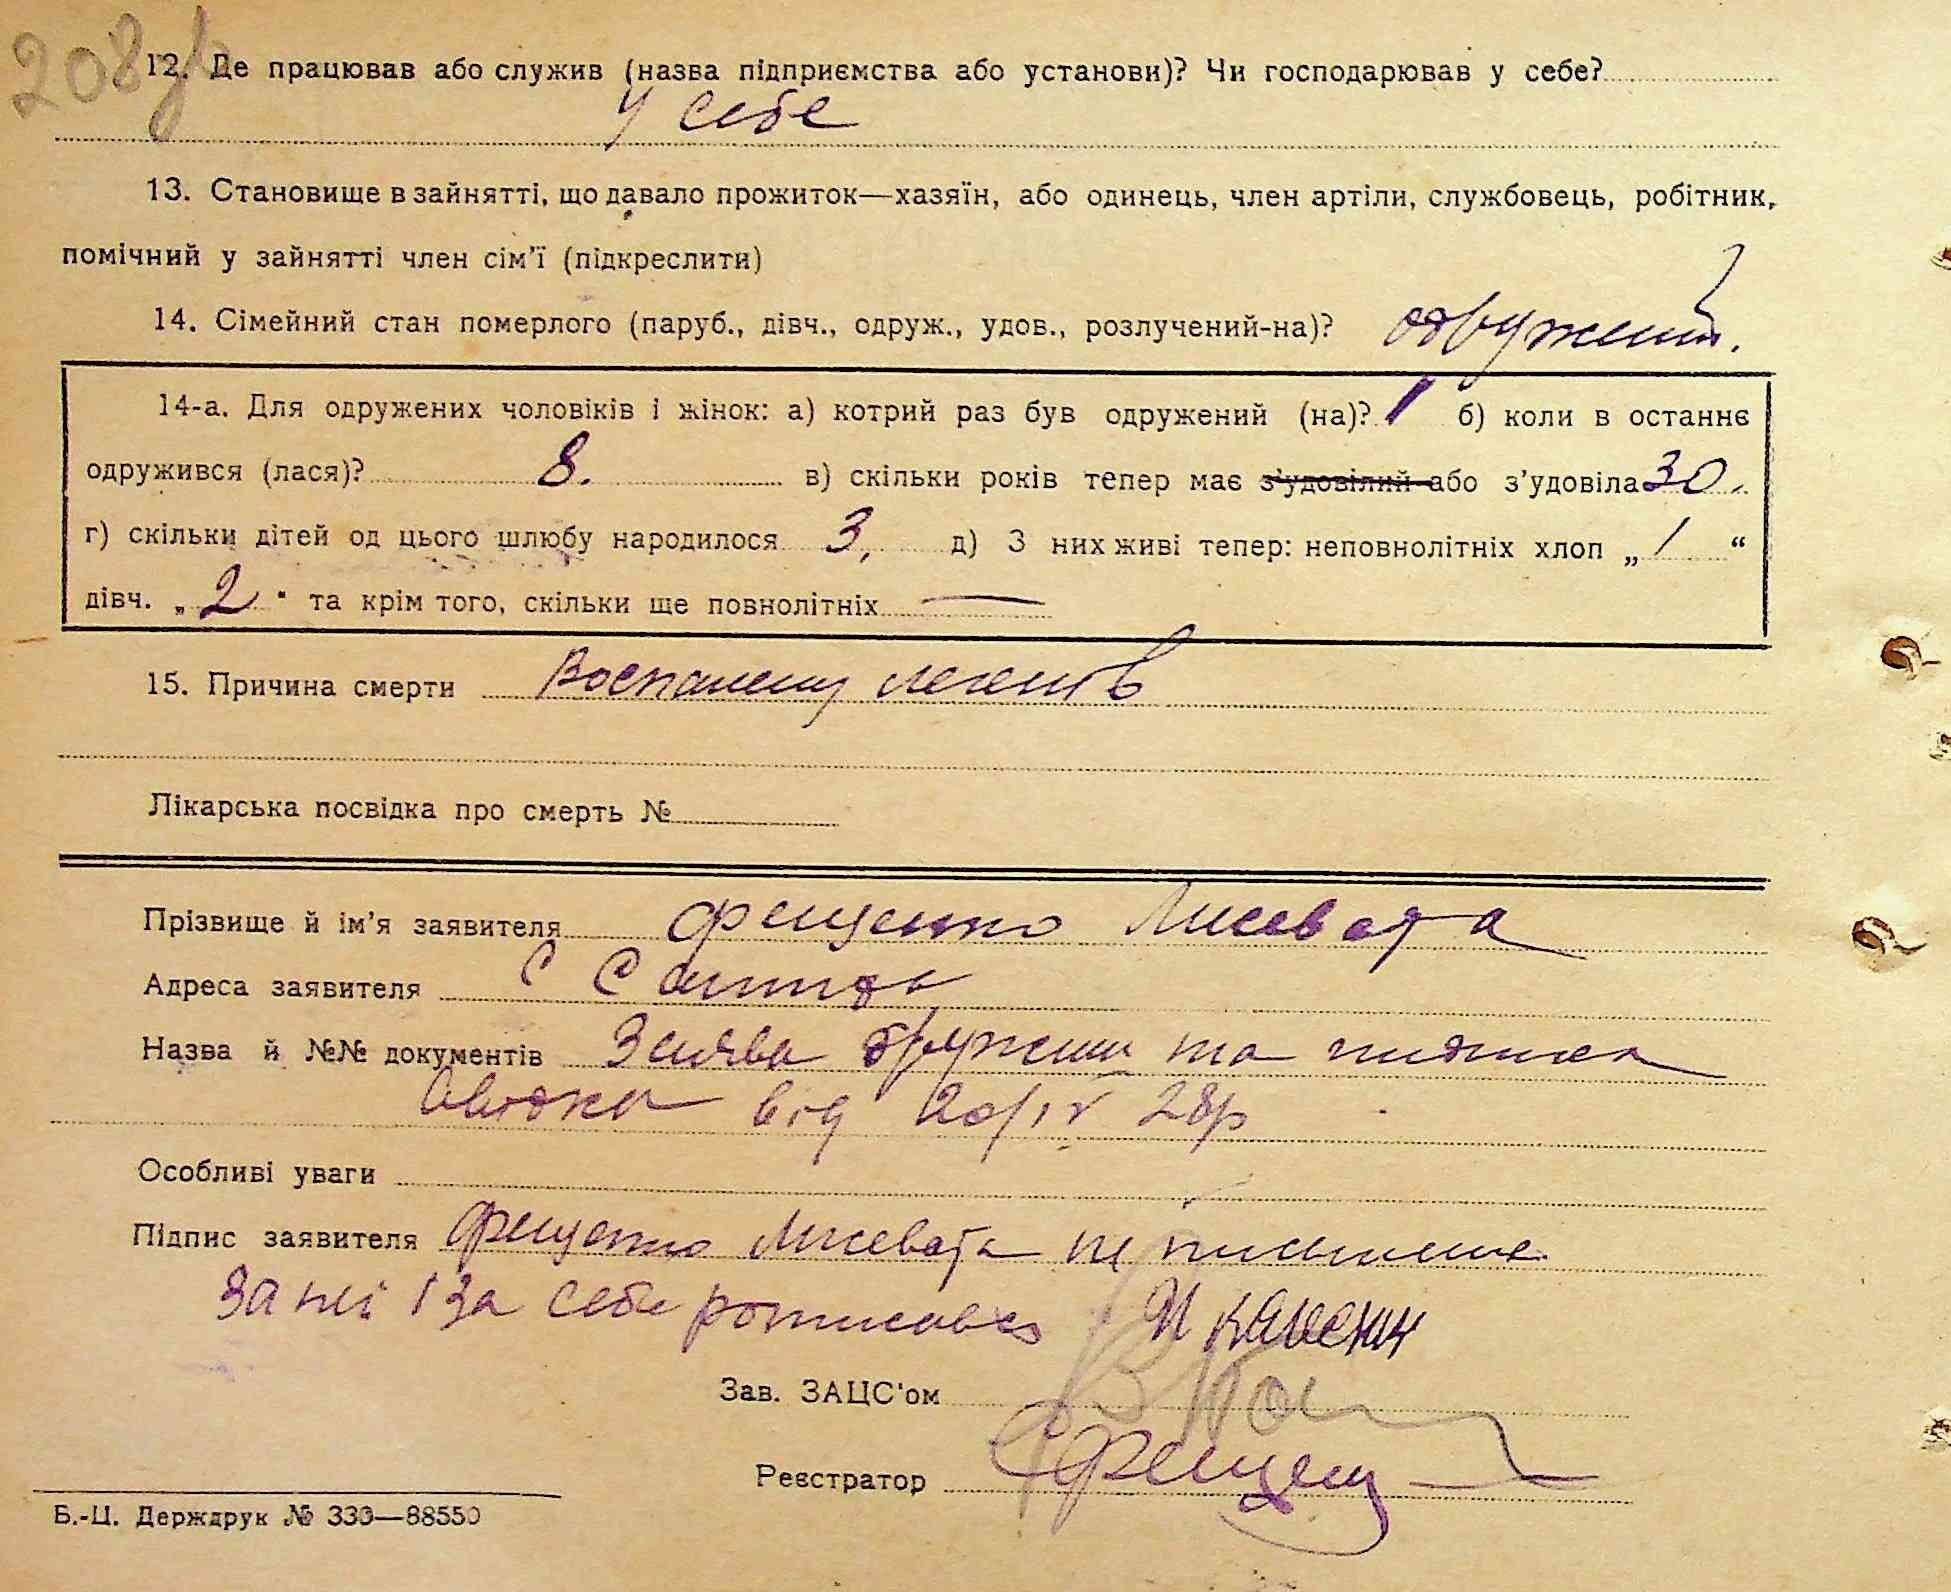 208
12. Де працював або служив (назва підприємства або установи)? Чи господарював у себе?
у себе
13. Становище в зайнятті, що давало прожиток—хазяїн, або одинець, член артіли, службовець, робітник,
помічний у зайнятті член сім'ї (підкреслити)
14. Сімейний стан померлого (паруб., дівч., одруж., удов., розлучений-на)? одружений.
14-а. Для одружених чоловіків і жінок: а) котрий раз був одружений (на)? 1 б) коли в останнє
одружився (лася)? 8. в) скільки років тепер має з'удовілий або з'удовіла 30.
г) скільки дітей од цього шлюбу народилося 3, д) З них живі тепер: неповнолітніх хлоп „ 1 “
дівч. „ 2 “ та крім того, скільки ще повнолітніх —
15. Причина смерти
Лікарська посвідка про смерть №
Прізвище й ім'я заявителя Фещенко Лисевета
Адреса заявителя с
Назва й №№ документів Заява дружини та
від 20/IV 28р
Особливі уваги
Підпис заявителя Фещенко Лисевета не письменна
За неї і за себе росписався
Зав. ЗАЦС'ом
Реєстратор Фещенко
Б.-Ц. Держдрук № 333—88550